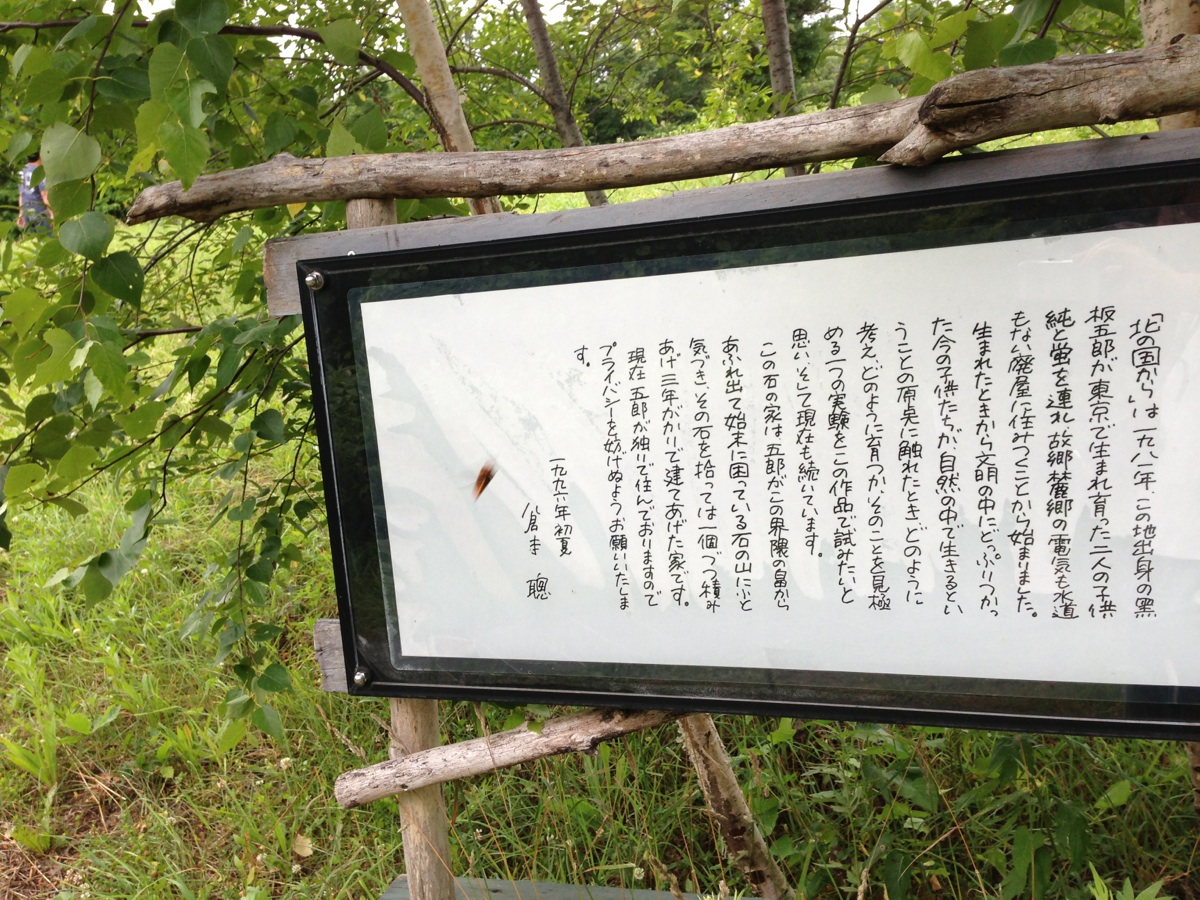 「北の国から」は一九八一年、この地出身の黒
板五郎が東京で生まれ育った二人の子供
純と蛍を連れ故郷麓郷の電気も水道
もない廃屋に住みつくことから始まりました。
生まれたときから文明の中にどっぷりつかっ
た今の子供たちが、自然の中で生きるとい
うことの原点に触れたときどのように
考え、どのように育つか、そのことを見極
める一つの実験をこの作品で試みたいと
思い、そして現在も続いています。
この石の家は五郎がこの界隈の畠から
あふれ出て始末に困っている石の山にふと
気づき、その石を拾っては一個づつ積み
あげ二年がかりで建てあげた家です。
現在五郎が独りで住んでおりますので
プライバシーを妨げぬようお願いいたしま
す。
一九九六年初夏
倉本 聰